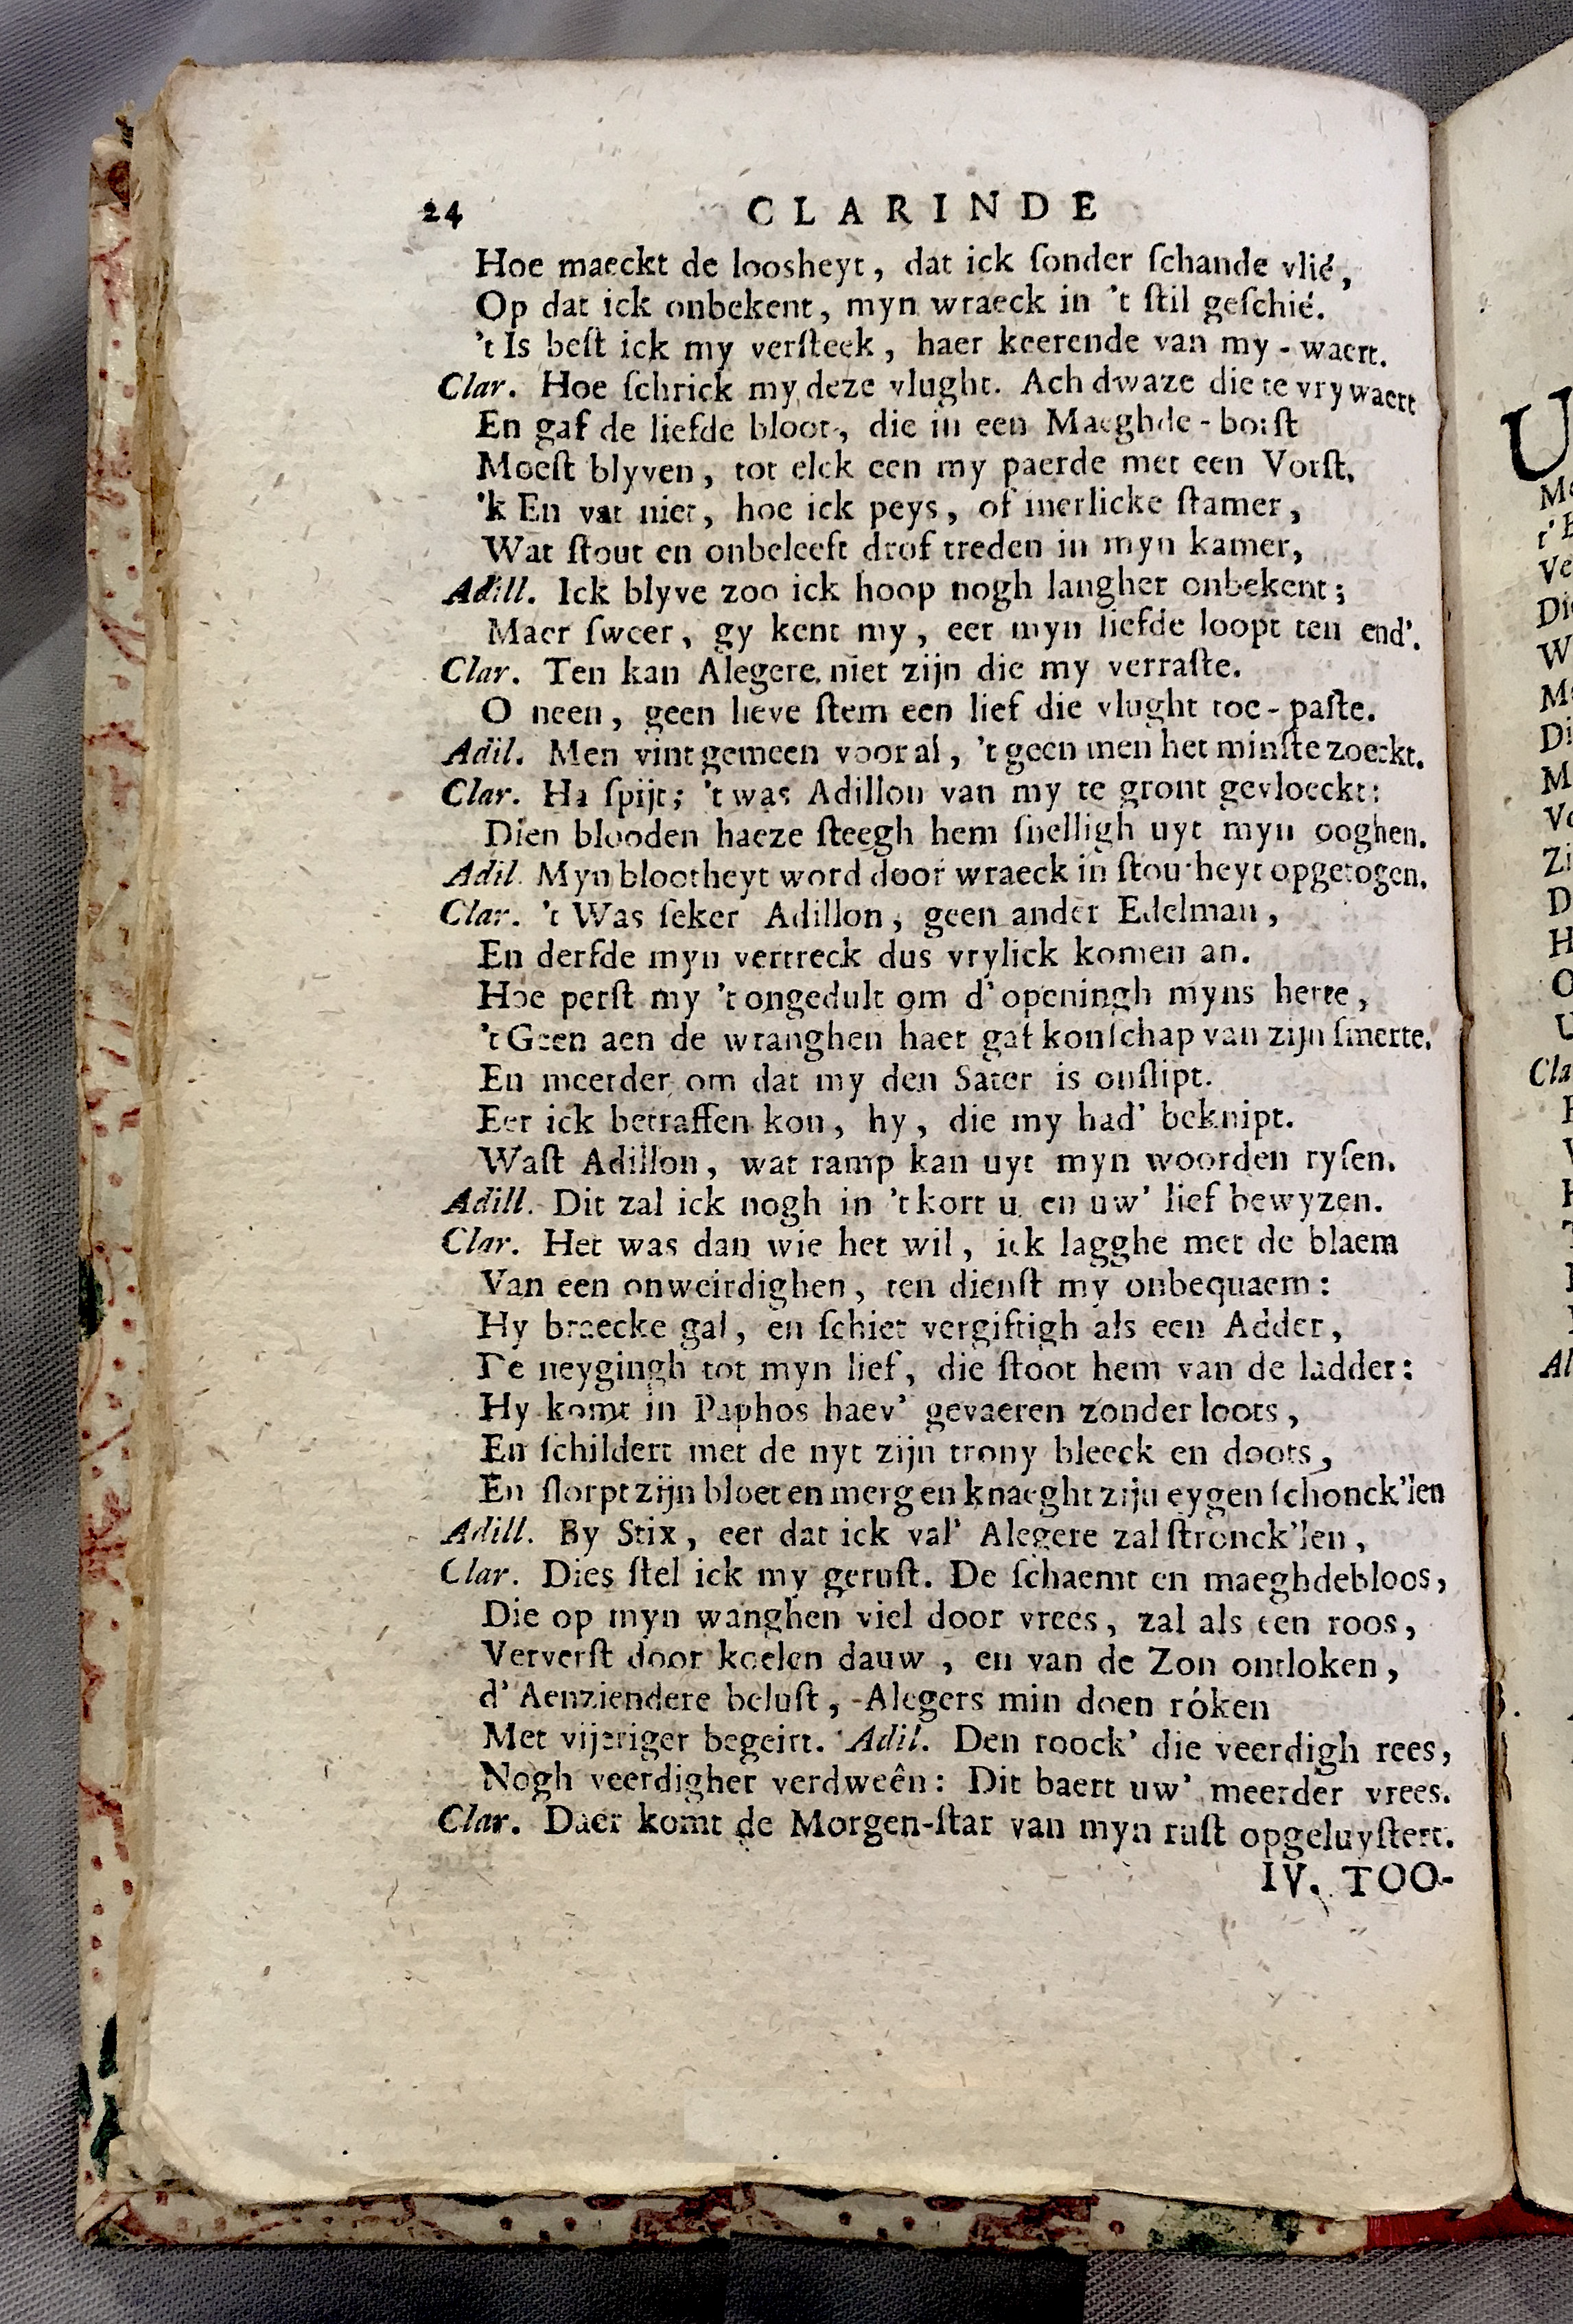 24 CLARINDE
Hoe maeckt de loosheyt, dat ick ſonder ſchande vlié,
Op dat ick onbekent, myn wraeck in 't ſtil geſchié.
't Is beſt ick my verſteek, haer keerende van my-waert.
Clar. Hoe ſchrick my deze vlught. Ach dwaze die te vry waert
En gaf de liefde bloot, die in een Maeghde-borſt
Moeſt blyven, tot elck een my paerde met een Vorſt.
'k En vat niet, hoe ick peys, of merlicke ſtamer,
Wat ſtout en onbeleeft drof treden in myn kamer,
Adill. Ick blyve zoo ick hoop nogh langher onbekent;
Maer ſweer, gy kent my, eer myn liefde loopt ten end'.
Clar. Ten kan Alegere niet zijn die my verraſte.
O neen, geen lieve ſtem een lief die vlught toe-paſte.
Adil. Men vint gemeen voor al, 't geen men het minſte zoeckt.
Clar. Ha ſpijt; 't was Adillon van my te gront gevloeckt:
Dien blooden haeze ſteegh hem ſnelligh uyt myn ooghen.
Adil. Myn blootheyt word door wraeck in ſtoutheyt opgetogen.
Clar. 't Was ſeker Adillon, geen ander Edelman,
En derfde myn vertreck dus vrylick komen an.
Hoe perſt my 't ongedult om d'openingh myns herte,
't Geen aen de wranghen haer gaf konſchap van zijn ſmerte.
En meerder om dat my den Sater is onſlipt.
Eer ick betraffen kon, hy, die my had' beknipt.
Waſt Adillon, wat ramp kan uyt myn woorden ryſen.
Adill. Dit zal ick nogh in 't kort u en uw' lief bewyzen.
Clar. Het was dan wie het wil, ick lagghe met de blaem
Van een onweirdighen, ten dienſt my onbequaem:
Hy braecke gal, en ſchiet vergiftigh als een Adder,
De neygingh tot myn lief, die ſtoot hem van de ladder:
Hy komt in Paphos haev' gevaeren zonder loots,
En ſchildert met de nyt zijn trony bleeck en doots,
En ſlorpt zijn bloet en merg en knaeght zijn eygen ſchonck'len
Adill. By Stix, eer dat ick val' Alegere zal ſtronck'len,
Clar. Dies ſtel ick my geruſt. De ſchaemt en maeghdebloos,
Die op myn wanghen viel door vrees, zal als een roos,
Ververſt door koelen dauw, en van de Zon ontloken,
d'Aenziendere beluſt, -Alegers min doen róken
Met vijeriger begeirt. Adil. Den roock' die veerdigh rees,
Nogh veerdigher verdweên: Dit baert uw' meerder vrees.
Clar. Daer komt de Morgen-ſtar van myn ruſt opgeluyſtert.
IV. TOO-